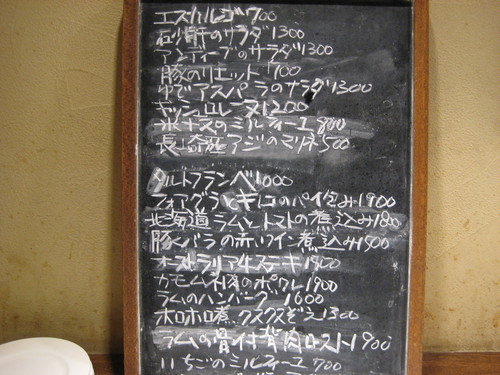 エスカルゴ 700
砂肝のサラダ 1300
アンディーブのサラダ 1300
豚のリエット 700
ゆでアスパラのサラダ 1300
キッシュロレーヌ 1200
米ナスのミルフィーユ 800
長崎産アジのマリネ 500
タルトフランベ 1000
フォアグラときのこのパイ包み 1900
北海道ラムとトマトの煮込み 1800
豚バラの赤ワイン煮込み 1500
オーストラリア牛ステーキ 1800
カモモモ肉のポワレ 1900
ラムのハンバーグ 1600
ホロホロ煮、クスクスぞえ 1300
ラムの骨付背肉ロースト 1900
いちごのミルフィーユ 700